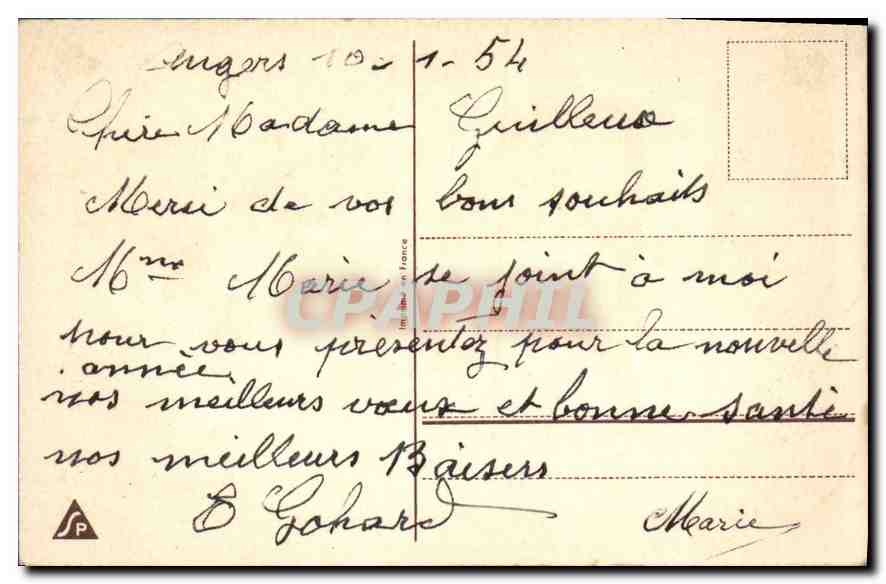 Angers 10-1-54
Chère Madame Guilleux
Mersi de vos bons souhaits
Mme Marie se joint à moi
pour vous présentez pour la nouvelle
année
nos meilleurs vœux et bonne santé
nos meilleurs Baisers
E Gohard Marie
Imprimé en France
CPAPHIL
SP